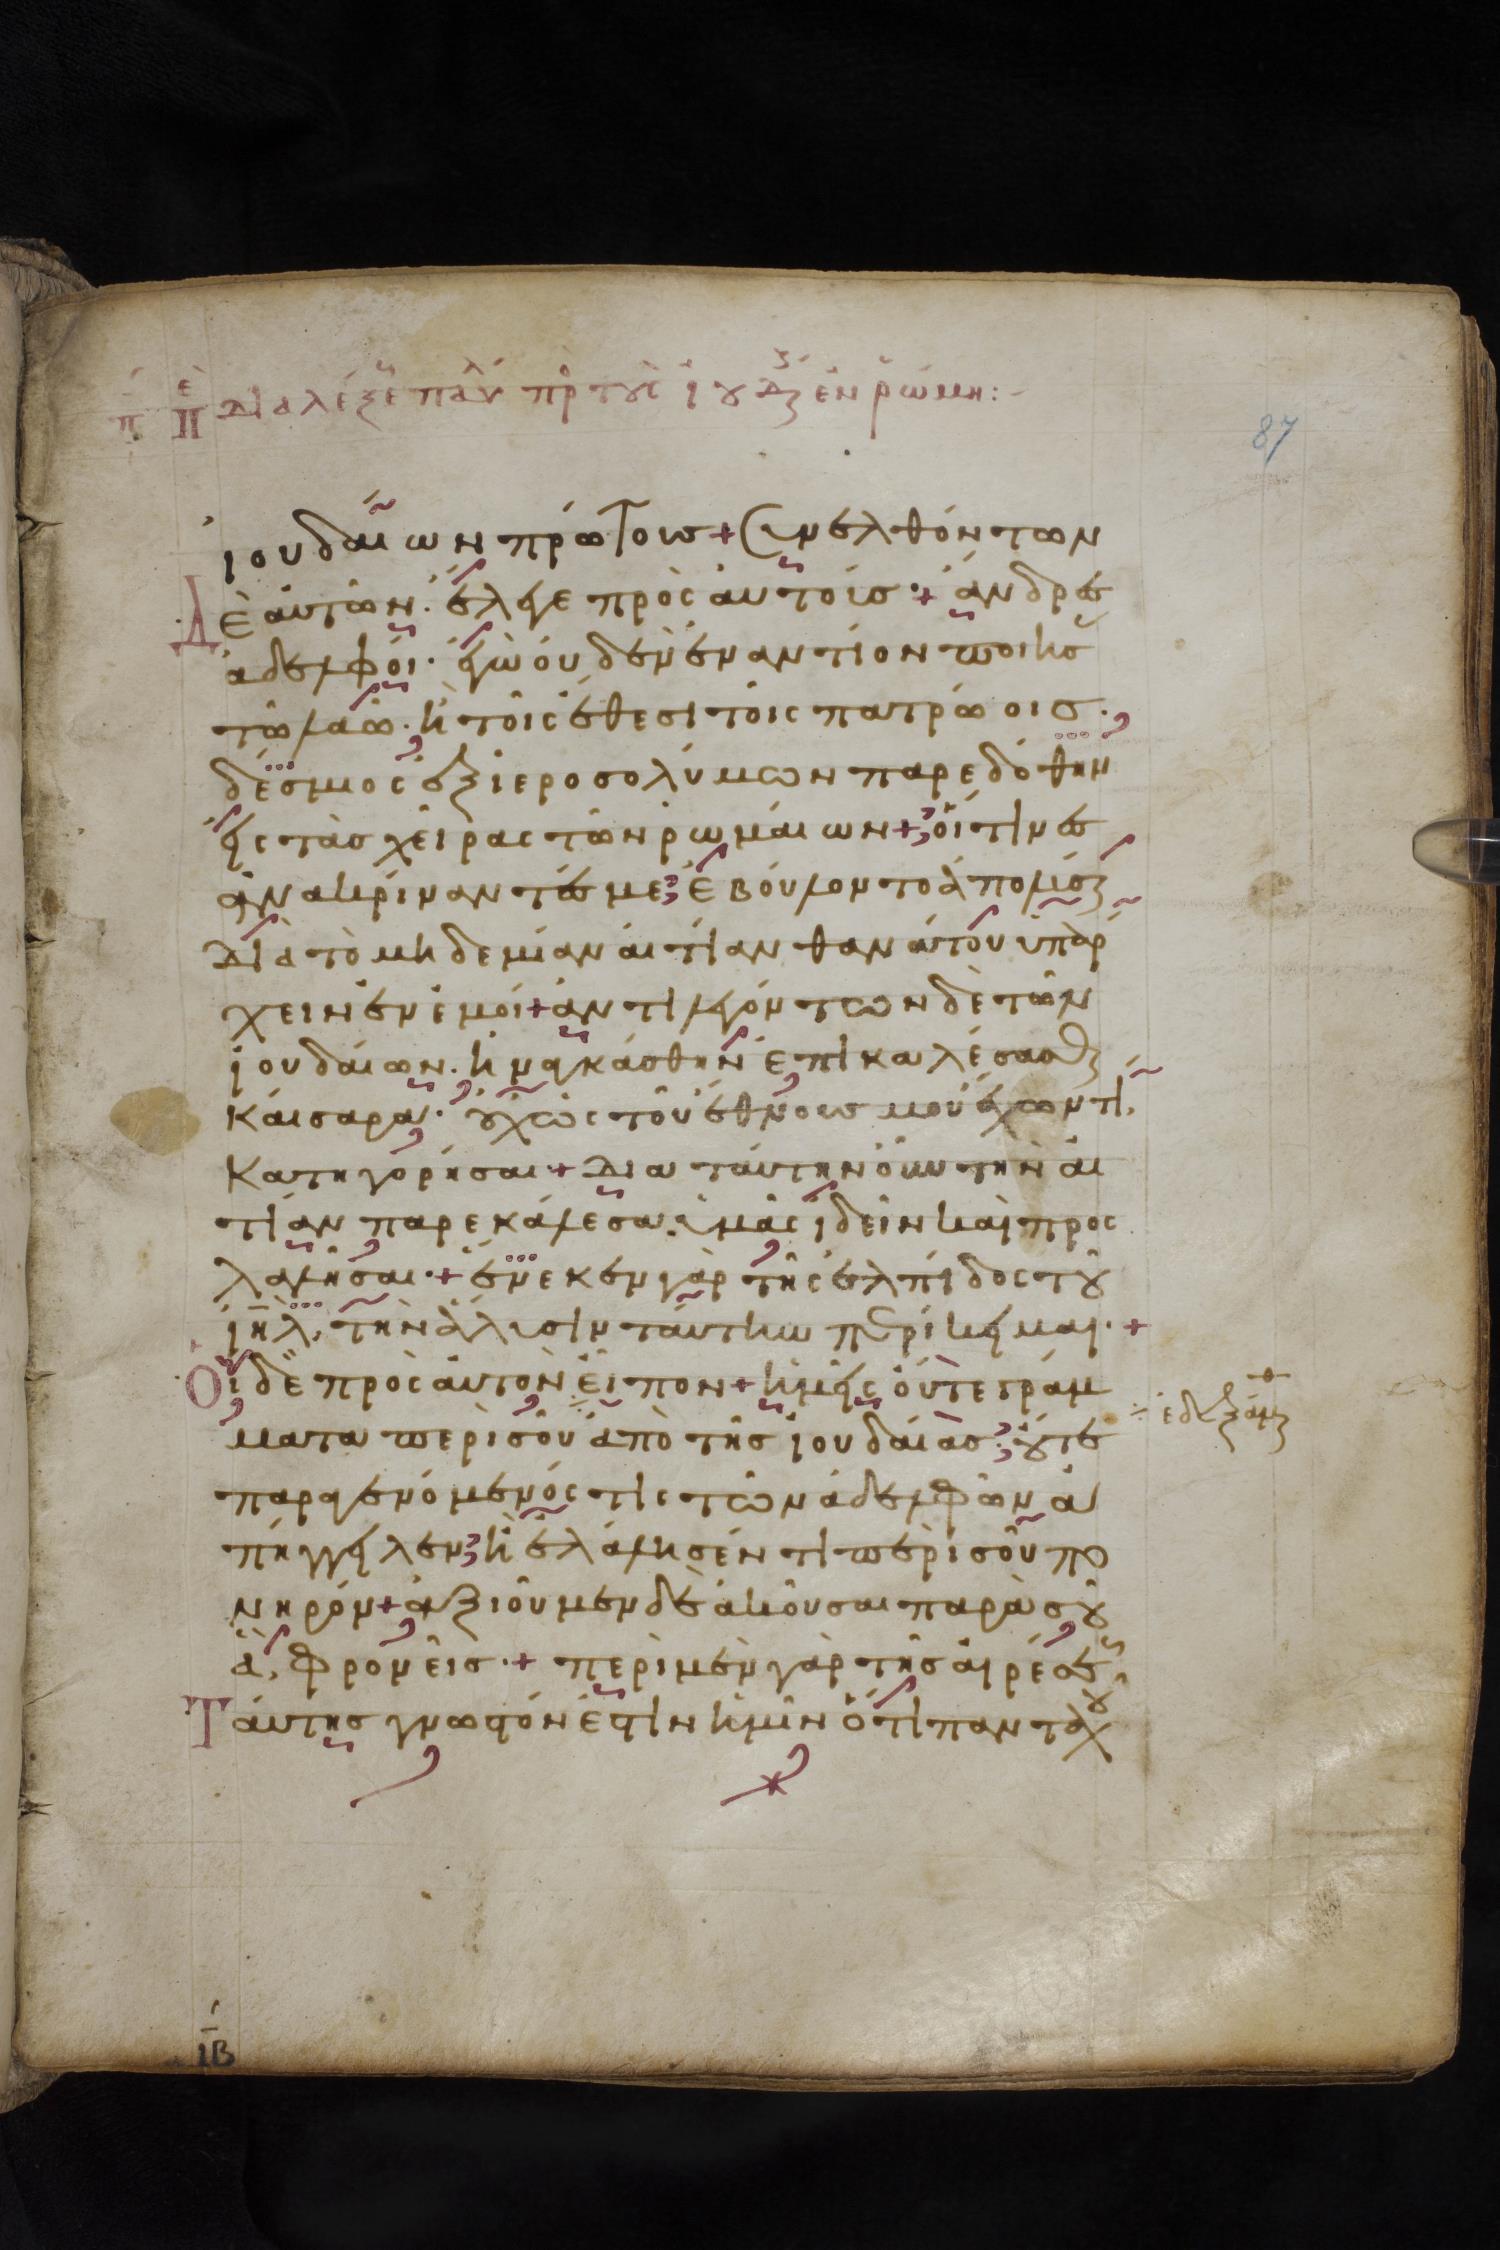 Διαλέξε παυ πρ τους ιουδ εν ρώμη:-
87
ἰουδαίων πρώτους + συνελθόντων
Δὲ αὐτῶν. ἔλεγε πρὸς αὐτούς + ἄνδρες
ἀδελφοί. ἐγὼ οὐδὲν ἐναντίον ποιήσ
τῶ λαῶ. ἢ τοῖς ἔθεσι τοῖς πατρώοις.
δέσμιος ἐξ ἱεροσολύμων παρεδόθην
εἰς τὰς χεῖρας τῶν ρωμαίων + οἵτινες
ἀνακρίναντές με ἐβούλοντο ἀπολύσ
Διὰ τὸ μηδεμίαν αἰτίαν θανάτου ὑπάρ
χειν ἐν ἐμοί + ἀντιλεγόντων δὲ τῶν
ἰουδαίων. ἠναγκάσθην ἐπικαλέσασθ
καίσαρα. οὐχ ὡς τοῦ ἔθνους μου ἔχων τι,
κατηγορῆσαι + Διὰ ταύτην οὖν τὴν αἰ
τίαν παρεκάλεσα ὑμᾶς ἰδεῖν καὶ προς
λαλῆσαι + ἕνεκεν γὰρ τῆς ἐλπίδος τοῦ
ἰηλ, τὴν ἅλυσιν ταύτην περίκειμαι. +
Οἱ δὲ πρὸς αὐτὸν εἶπον + ἡμεῖς οὔτε γράμ
ματα περὶ σοῦ ἀπὸ τῆς ἰουδαίας οὔτε
παραγενόμενός τις τῶν ἀδελφῶν ἀ
πήγγειλεν ἢ ἐλάλησέν τι περὶ σοῦ πο
νηρόν + ἀξιοῦμεν δὲ ἀκοῦσαι παρὰ σοῦ
ἃ, φρονεῖς. + περὶ μὲν γὰρ τῆς αἱρέσε
Ταύτης γνωστόν ἐστιν ἡμῖν ὅτι πανταχοῦ
ἐδεξάμ
ιβ